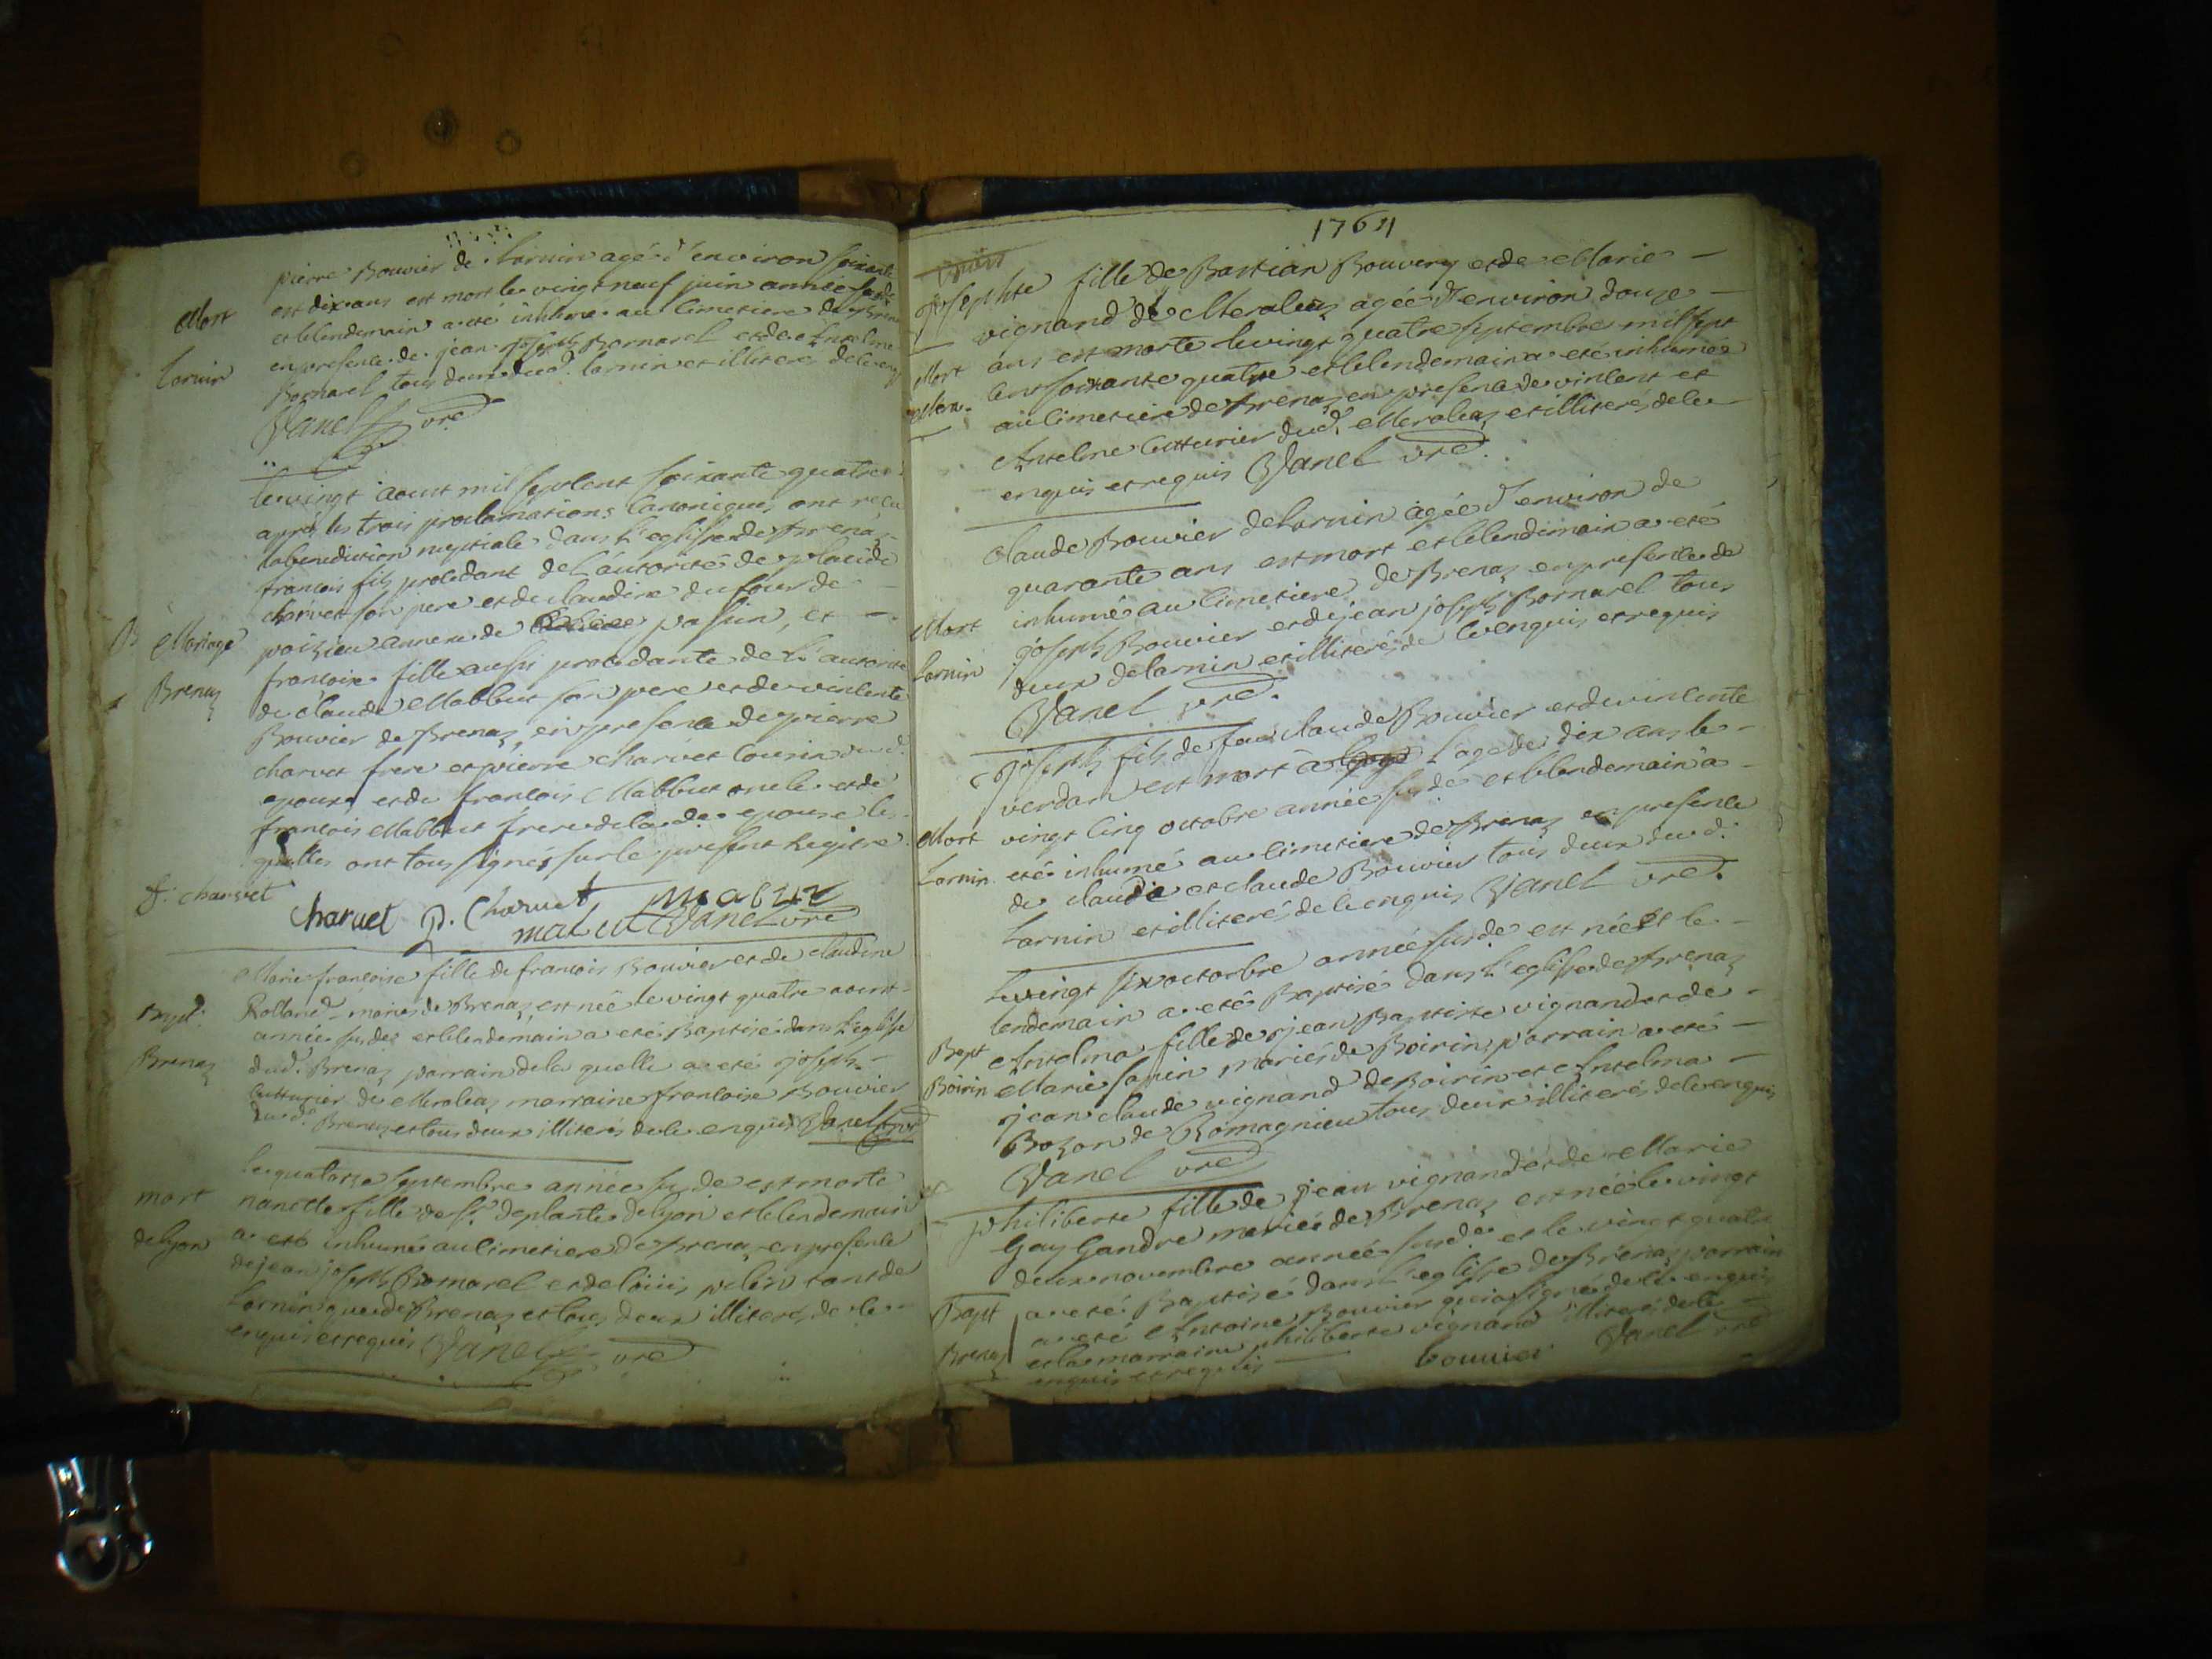 pierre Bouvier de Lornin agé d'environ soixante
et dix ans est mort le vingt neuf juin année susde
Mort
et lelendemain a eté inhumé au cimetiere de Brenaz
en presence de jean joseph Bornarel et de Anselme
Lornin
Bornarel tous deux dud. Lornin et illiterés de ce enq
Vanel vre
le vingt aoust mil sept cent soixante quatre
aprés les trois proclamations canoniques ont reçu
la benediction nuptiale dans l'eglisse de Brenaz
francois fils procedant de l'autorité de placide
charvet son pere et de claudine dufour de
poizieu annexe de pasin, et
Mariage
francoise fille aussi procedante de l'autorité
Brenaz
de claude Mabbut son pere et de vincente
Bouvier de Brenaz, en presence de pierre
charvet frere et pierre charvet cousin dud.
epoux, et de francois Mabbut oncle et de
francois Mabbut frere de lade epouse les
quelles ont tous signés sur le present Registre
f. charvet
charvet P. Charvet mabut
mabut Vanel vre
Marie francoise fille de francois Bouvier et de claudine
Rolland mariés de Brenaz, est née le vingt quatre aoust
Bapt.
année susde et lelendemain a eté Baptisé dans l'eglisse
Brenaz
dud. Brenaz parrain de la quelle a eté joseph
Cutturier de Meraleaz marraine francoise Bouvier
dud. Brenaz et tous deux illiterés de ce enquis Vanel vre
le quatorze septembre année susde est morte
mort
nanette fille de sr. deplante de lyon et lelendemain
de lyon
a eté inhumé au cimetiere de Brenaz en presence
de jean joseph Bornarel et de louis pelin tant de
Lornin que de Brenaz et tous deux illiterés de ce
enquis et requis Vanel vre
1764
josephte fille de Bastian Bouvery et de Marie
vignand de Meraleaz agée d'environ douze
Mort
ans est morte le vingt quatre septembre mil sept
Mera.
cent soixante quatre et lelendemain a eté inhumée
au cimetiere de Brenaz en presence de vincent et
Anselme Cutturier dud. Meraleaz et illiterés de ce
enquis et requis Vanel vre.
claude Bouvier de Lornin agée d'environ de
quarante ans est mort et lelendemain a eté
Mort
inhumé au cimetiere de Brenaz en presence de
joseph Bouvier et de jean joseph Bornarel tous
Lornin
deux de Lornin et illiterés de ce enquis et requis
Vanel vre.
joseph fils de feu claude Bouvier et de vincente
verdan est mort à l'age de dix ans le
Mort
vingt cinq octobre année susde et lelendemain a
Lornin
eté inhumé au cimetiere de Brenaz en presence
de claude et claude Bouvier tous deux dud.
Lornin et illiterés de ce enquis Vanel vre.
Le vingt six octobre année susde est née et le
lendemain a eté Baptisé dans l'eglisse de Brenaz
Bapt
Anselma fille de jean Baptiste vignand et de
Boirin
Marie sapin mariés de Boirin, parrain a eté
jean claude vignand de Boirin et Anselma
Bozon de Romagnieu tous deux illiterés de ce enquis
Vanel vre
philiberte fille de jean vignand et de Marie
Gay Gandre mariés de Brenaz est née le vingt
deux novembre année susde et le vingt quatre
Bapt
a eté Baptisé dans l'eglisse de Brenaz parrain
a eté Antoine Bouvier qui a signé de ce enquis
Brenaz
et la marraine philiberte vignand illiteré de ce
enquis et requis
bouvier Vanel vre